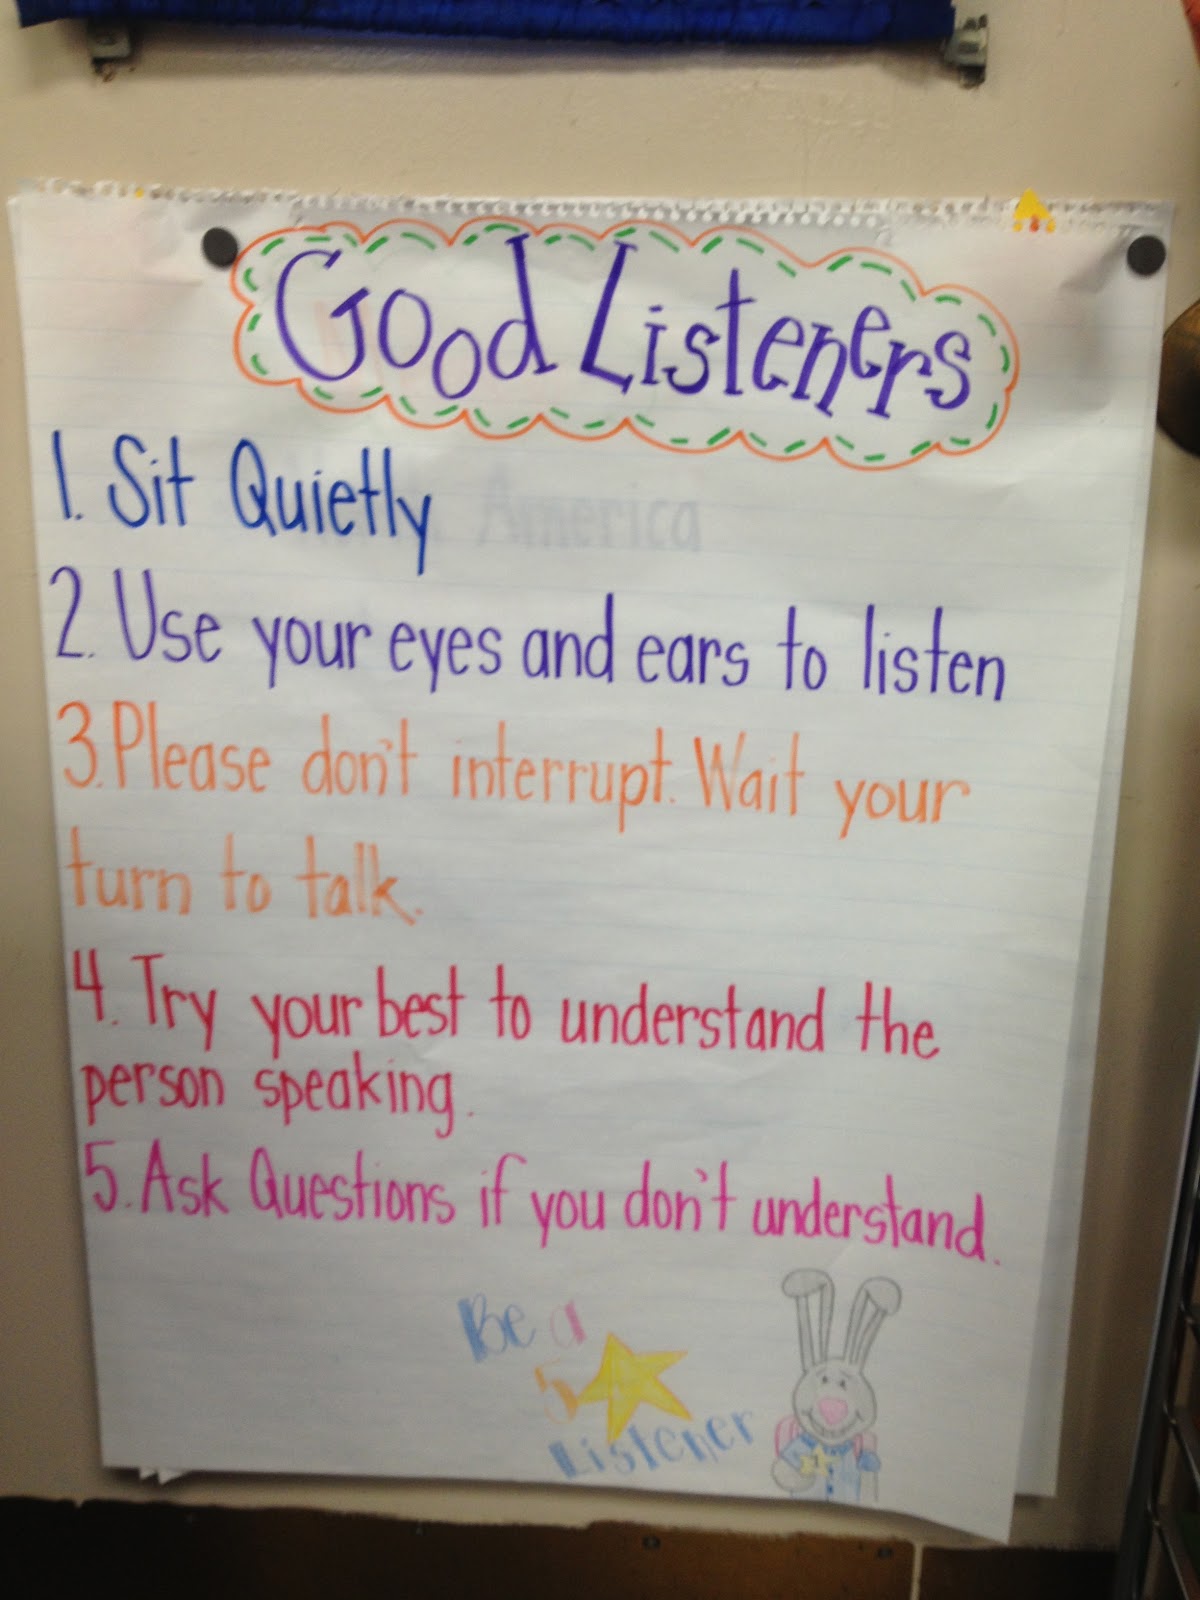 Good Listeners
1. Sit Quietly
America
2. Use your eyes and ears to listen
3. Please don't interrupt. Wait your
turn to talk.
4. Try your best to understand the
person speaking.
5. Ask Questions if you don't understand.
Be a
5
Listener